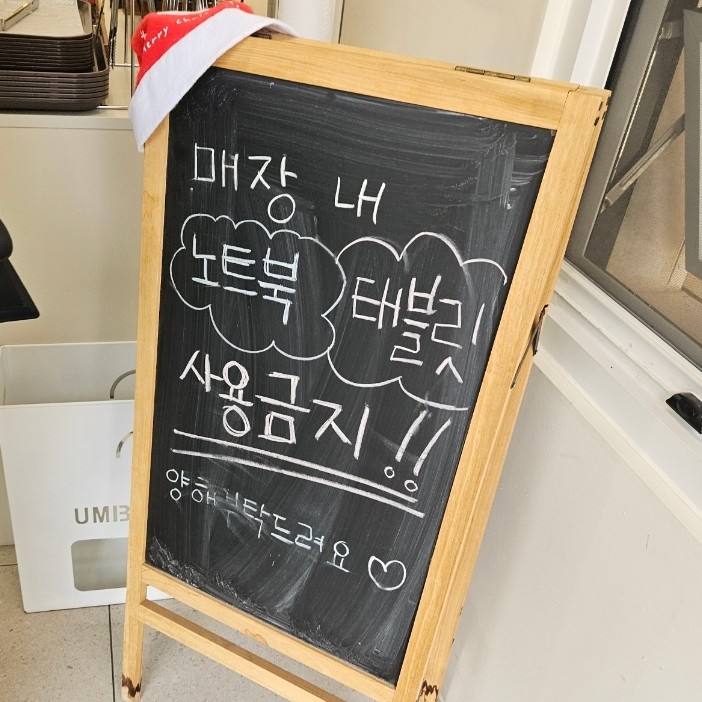 Merry Christmas
매장 내
노트북 태블릿
사용금지!!
양해부탁드려요♡
UMB